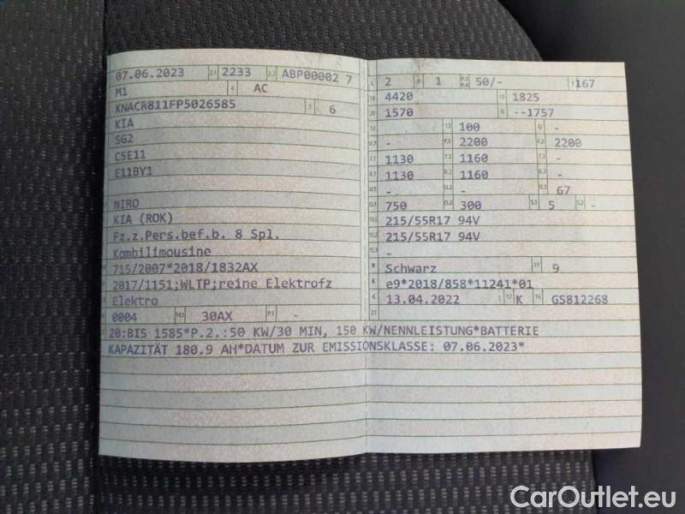 07.06.2023 2233 ABP00002 7
M1 AC
KNACR811FP5026585 6
KIA
SG2
C5E11
E11BY1
NIRO
KIA (ROK)
Fz.z.Pers.bef.b. 8 Spl.
Kombilimousine
715/2007*2018/1832AX
2017/1151;WLTP;reine Elektrofz
Elektro
0004 30AX -
2 1 50/- 167
4420 1825
1570 --1757
100 -
- 2200 2200
1130 1160 -
1130 1160 -
- - 67
750 300 5 -
215/55R17 94V
215/55R17 94V
-
Schwarz 9
e9*2018/858*11241*01
13.04.2022 K GS812268
20:BIS 1585*P.2.:50 KW/30 MIN, 150 KW/NENNLEISTUNG*BATTERIE
KAPAZITÄT 180.9 AH*DATUM ZUR EMISSIONSKLASSE: 07.06.2023*
CarOutlet.eu